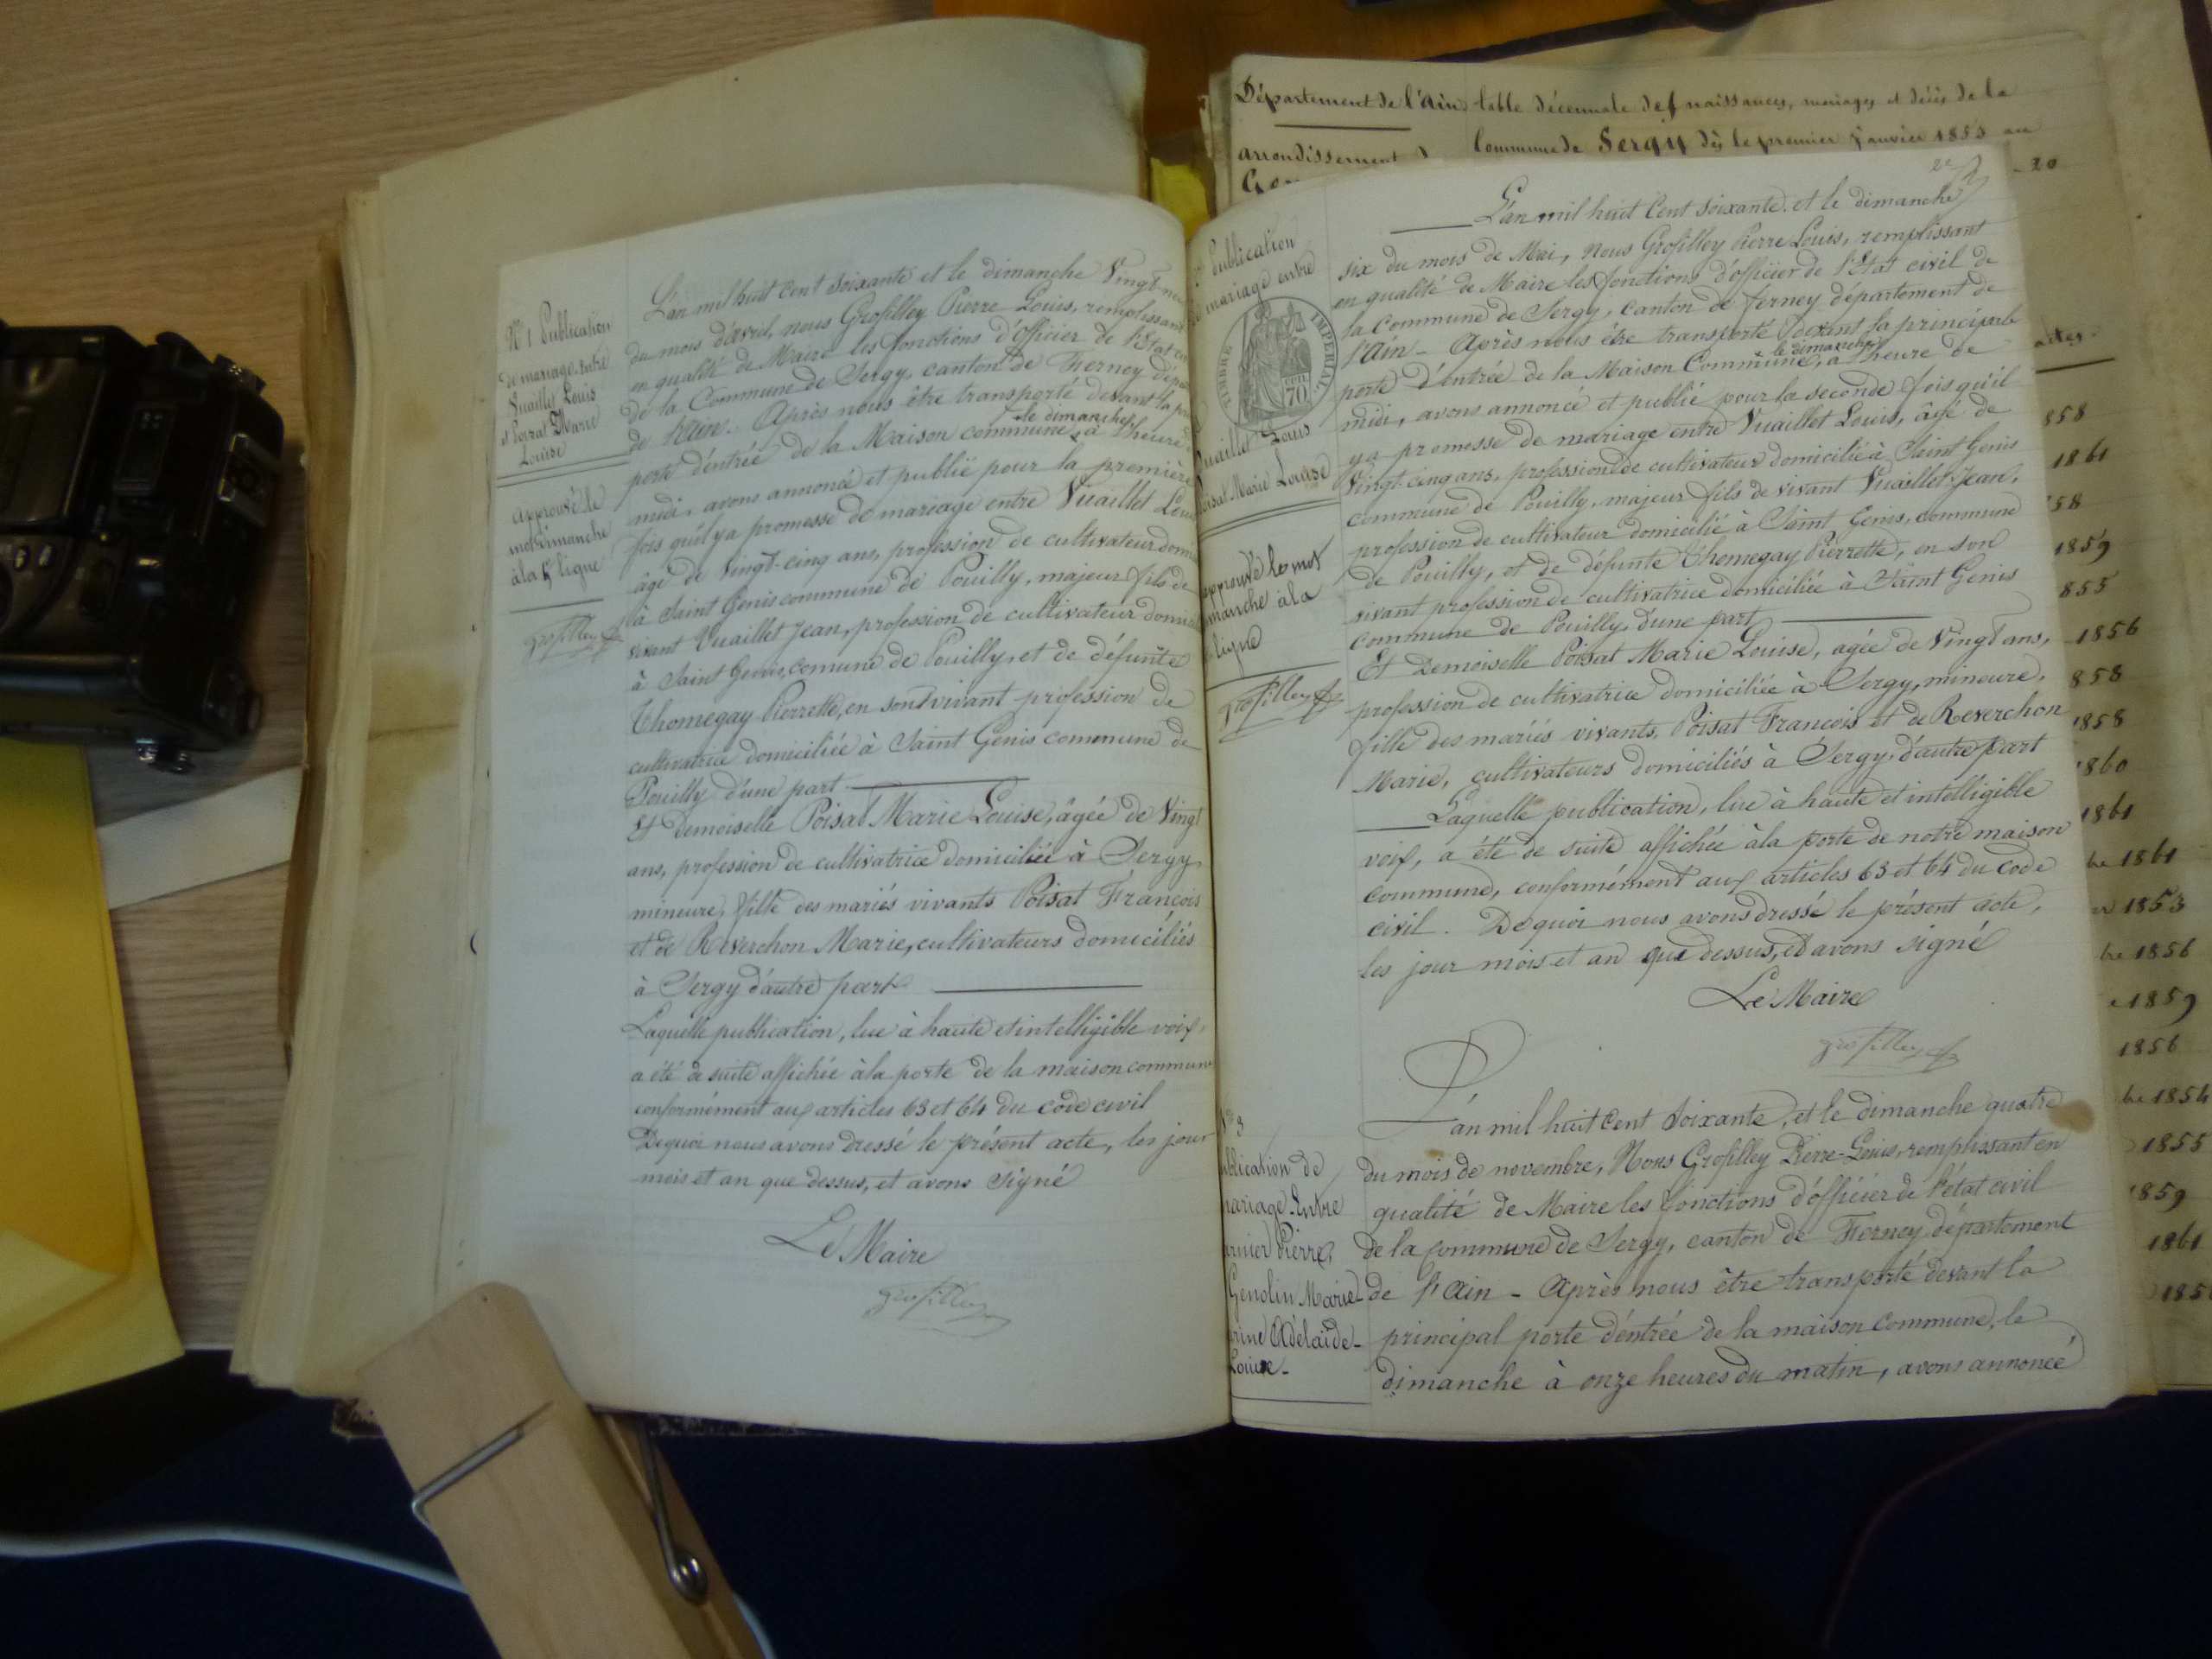 N° 1 Publication
de mariage entre
Vuaillet Louis
et Poisat Marie
Louise
approuvé le
mot dimanche
à la 6e ligne
Grosfilley
L'an mil huit Cent soixante et le dimanche Vingt-neuf
du mois d'avril, nous Grosfilley Pierre Louis, remplissant
en qualité de Maire les fonctions d'officier de l'Etat
de la Commune de Sergy, canton de Ferney
de l'ain. Après nous être transporté devant la
le dimanche
porte d'entrée de la Maison commune, à l'heure de
midi, avons annoncé et publié pour la première
fois qu'il y a promesse de mariage entre Vuaillet Louis
âgé de Vingt-cinq ans, profession de cultivateur
à Saint Genis commune de Pouilly, majeur fils de
vivant Vuaillet Jean, profession de cultivateur
à Saint Genis, comune de Pouilly, et de défunte
Thomegay Pierrette, en son vivant profession de
cultivatrice domiciliée à Saint Genis commune de
Pouilly d'une part
Et Demoiselle Poisat Marie Louise, âgée de Vingt
ans, profession de cultivatrice domiciliée à Sergy,
mineure, fille des mariés vivants Poisat François
et de Reverchon Marie, cultivateurs domiciliés
à Sergy d'autre part
Laquelle publication, lue à haute et intelligible voix,
a été de suite affichée à la porte de la maison commune
conformément aux articles 63 et 64 du code civil
De quoi nous avons dressé le présent acte, les jour
mois et an que dessus, et avons signé
Le Maire
Grosfilley
Département de l'Ain table décennale des naissances, mariages et décès de la
arrondissement commune de Sergy dès le premier Janvier 1853 au
20
Publication
mariage entre
TIMBRE IMPERIAL
70 cen
Vuaillet Louis
Poisat Marie Louise
approuvé le mot
dimanche à la
ligne
Grosfilley
L'an mil huit Cent soixante et le dimanche
six du mois de Mai, Nous Grosfilley Pierre Louis, remplissant
en qualité de Maire les fonctions d'officier de l'Etat civil de
la Commune de Sergy, canton de ferney département de
l'Ain - Après nous être transporté devant la principale
le dimanche
porte d'entrée de la Maison Commune, à l'heure de
midi, avons annoncé et publié pour la seconde fois qu'il
y a promesse de mariage entre Vuaillet Louis, âgé de
Vingt-cinq ans, profession de cultivateur domicilié à Saint Genis
commune de Pouilly, majeur fils de vivant Vuaillet Jean,
profession de cultivateur domicilié à Saint Genis, commune
de Pouilly, et de défunte Thomegay Pierrette, en son
vivant profession de cultivatrice domiciliée à Saint Genis
commune de Pouilly, d'une part
Et Demoiselle Poisat Marie Louise, agée de Vingt ans,
profession de cultivatrice domiciliée à Sergy, mineure,
fille des mariés vivants, Poisat Francois et de Reverchon
Marie, cultivateurs domiciliés à Sergy, d'autre part
Laquelle publication, lue à haute et intelligible
voix, a été de suite affichée à la porte de notre maison
commune, conformément aux articles 63 et 64 du Code
civil. De quoi nous avons dressé le présent acte,
les jour mois et an que dessus, et avons signé
Le Maire
Grosfilley
N° 3
Publication de
mariage Entre
Pierre,
Gendlin Marie
Adélaïde
Louise
L'an mil huit Cent soixante, et le dimanche quatre
du mois de novembre, Nous Grosfilley Pierre-Louis, remplissant en
qualité de Maire les fonctions d'officier de l'état civil
de la commune de Sergy, canton de Ferney département
de l'Ain - Après nous être transporté devant la
principal porte d'entrée de la maison commune, le
dimanche à onze heures du matin, avons annoncé
actes.
858
1861
58
1859
855
1856
858
1858
1860
1861
bre 1861
1853
bre 1856
1859
1856
bre 1854
1855
1859
1861
185